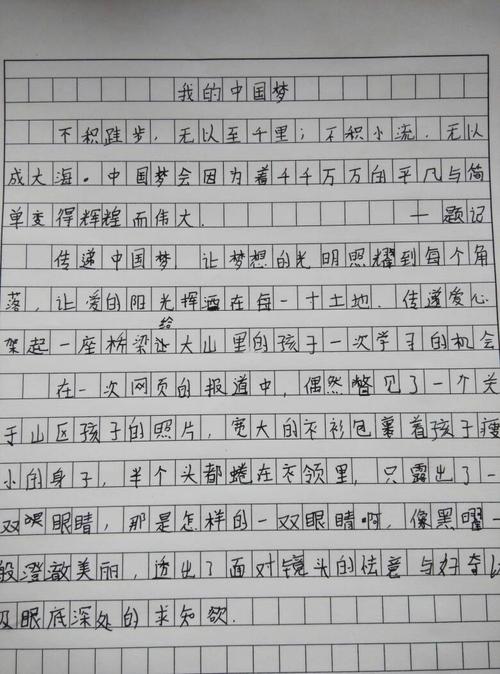 我的中国梦
不积跬步，无以至千里；不积小流，无以
成大海。中国梦会因为着千千万万的平凡与简
单变得辉煌而伟大。 —题记
传递中国梦 让梦想的光明照耀到每个角
落，让爱的阳光挥洒在每一寸土地，传递爱心
架起一座桥梁给大山里的孩子一次学习的机会
在一次网页的报道中，偶然瞥见了一个关
于山区孩子的照片，宽大的衣衫包裹着孩子瘦
小的身子，半个头都蜷在衣领里，只露出了一
双眼睛，那是怎样的一双眼睛啊，像黑曜一
般澄澈美丽，透出了面对镜头的怯意与好奇以
及眼底深处的求知欲.